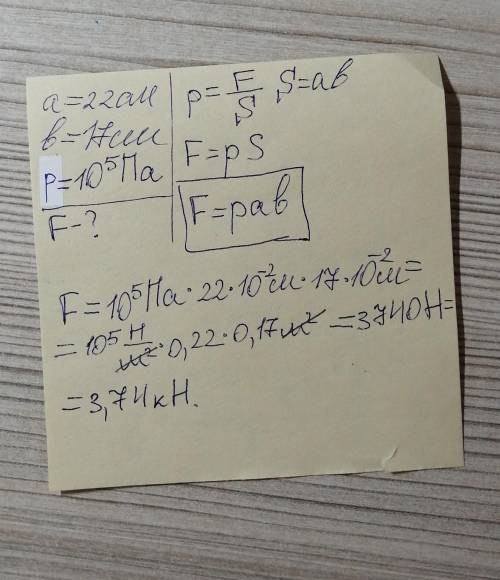 a=22см
b=17см
P=10⁵Па
F-?
p=F/S S=ab
F=pS
F=pab
F=10⁵Па·22·10⁻²м·17·10⁻²м=
=10⁵ Н/м²·0,22·0,17м²=3740Н=
=3,74кН.